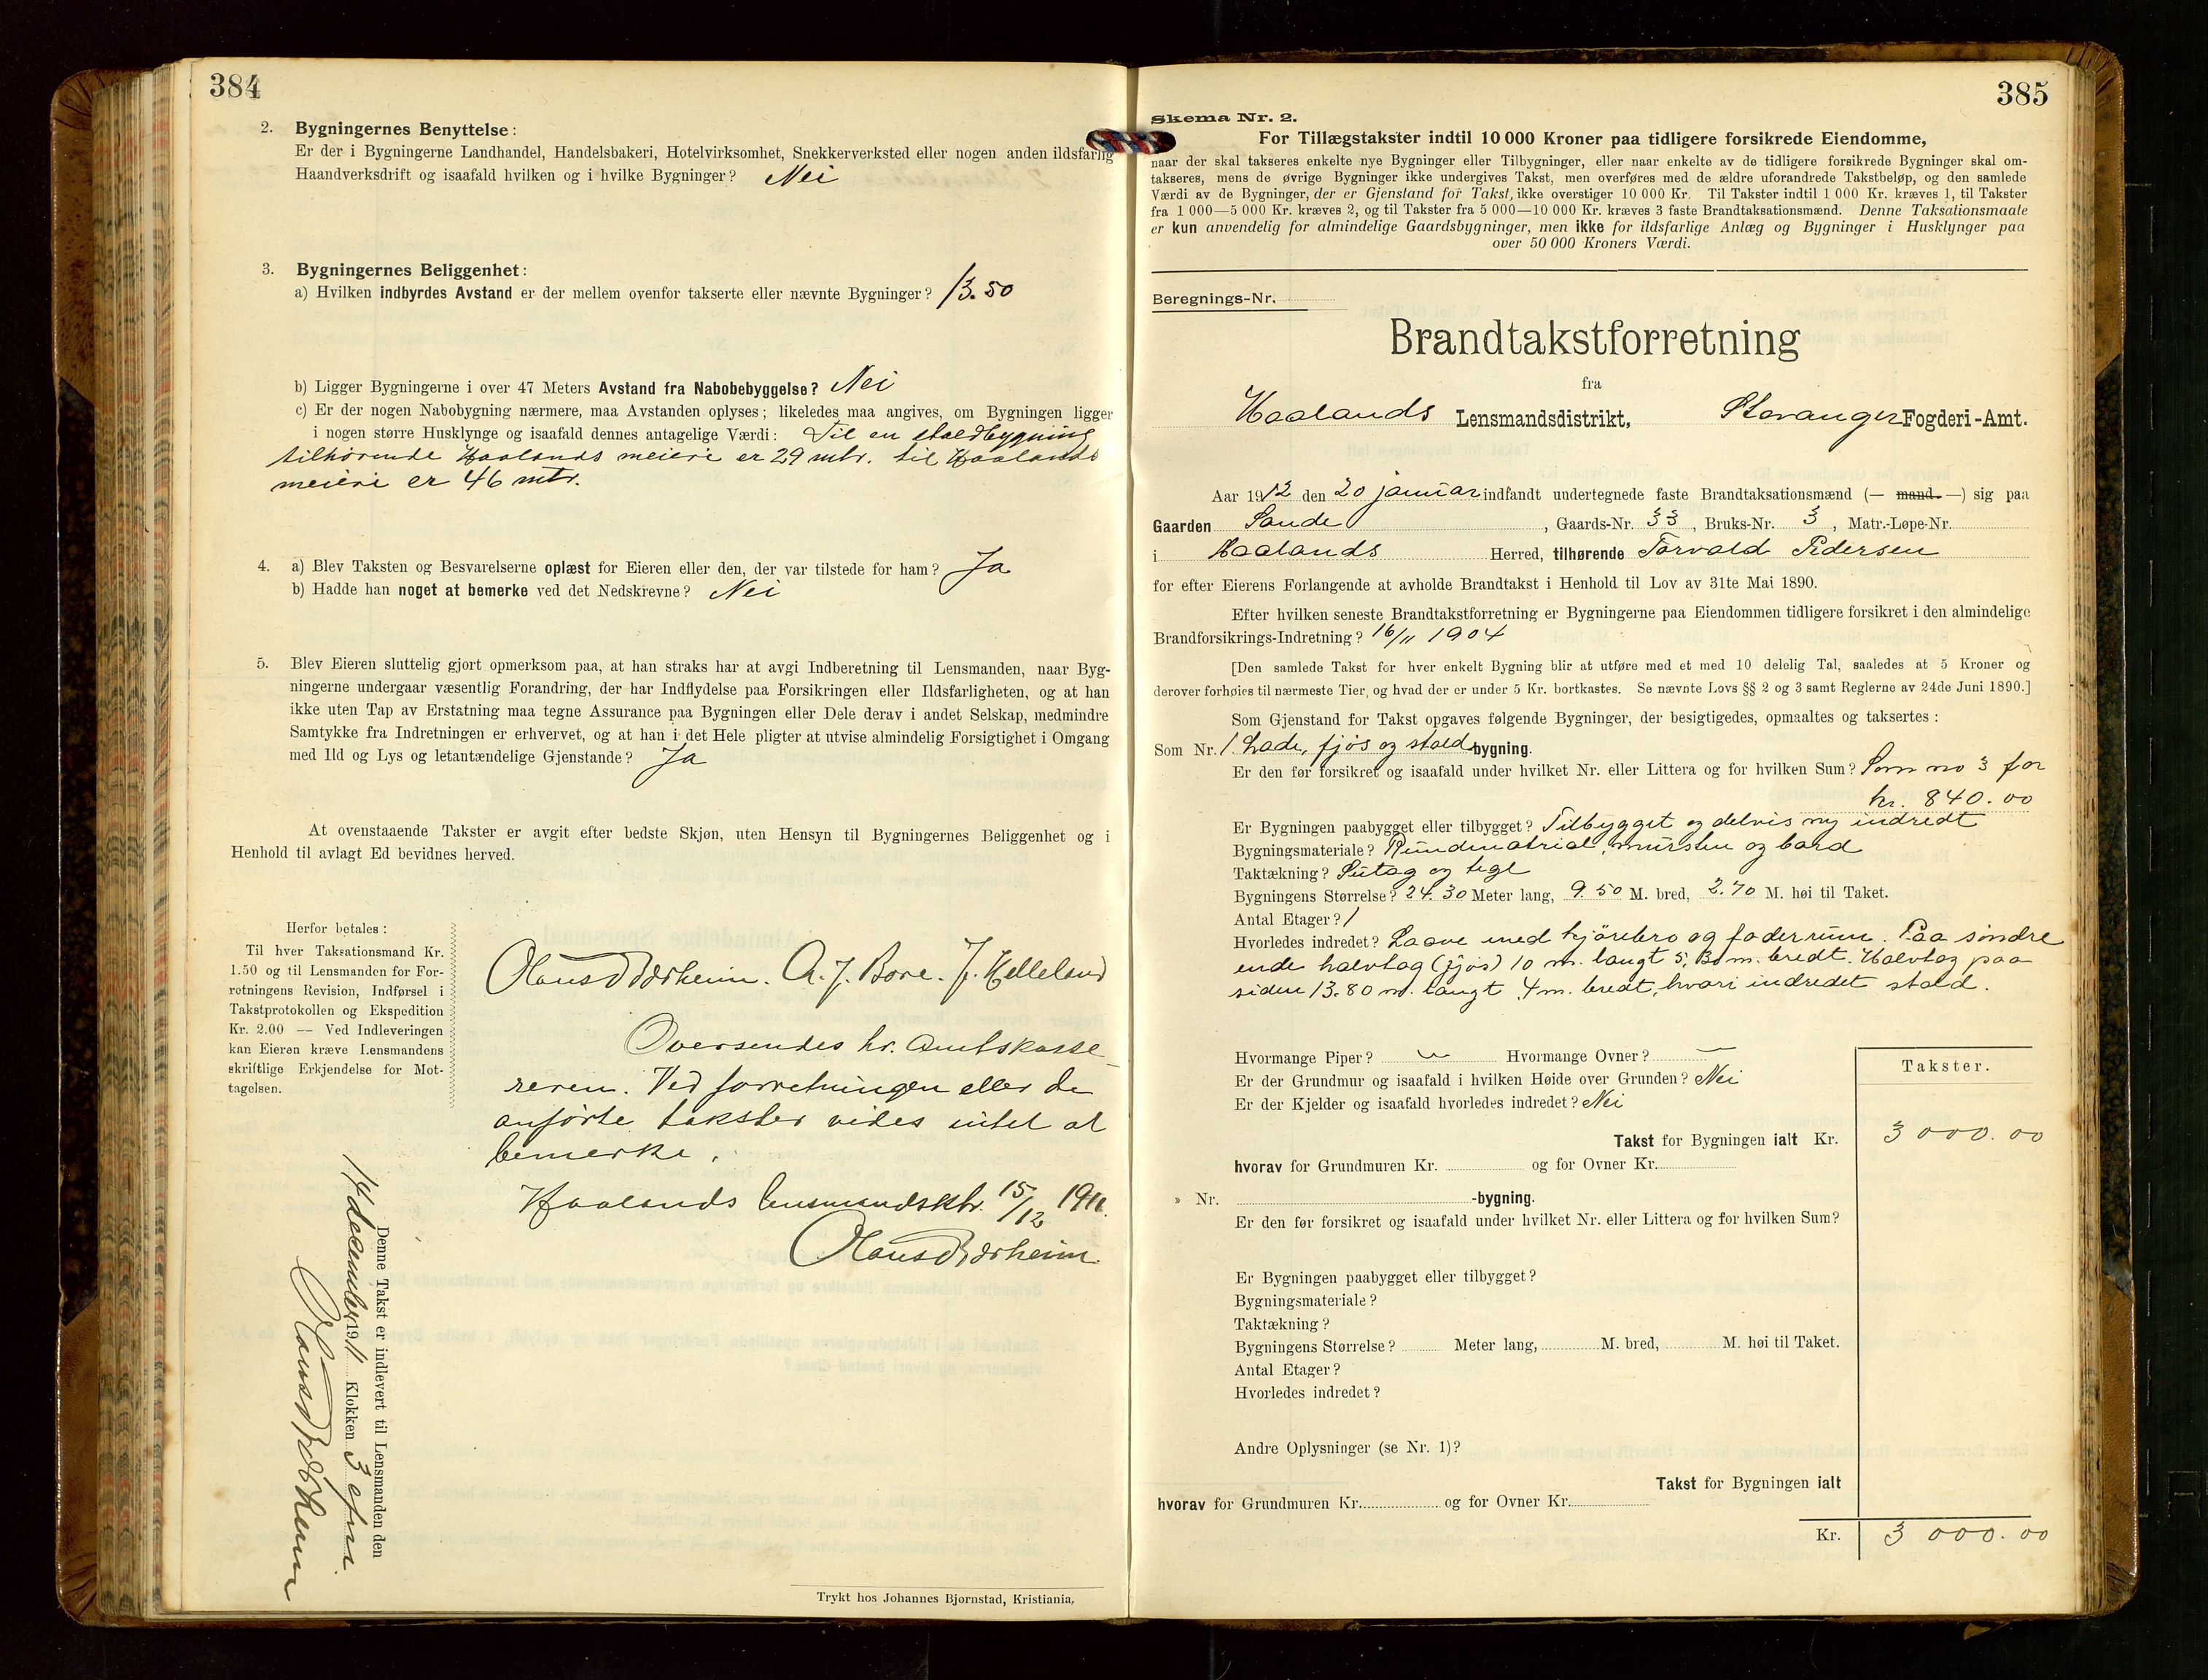 384
2. Bygningernes Benyttelse:
Er der i Bygningerne Landhandel, Handelsbakeri, Hotelvirksomhet, Snekkerverksted eller nogen anden ildsfarlig
Haandverksdrift og isaafald hvilken og i hvilke Bygninger? Nei
3. Bygningernes Beliggenhet:
a) Hvilken indbyrdes Avstand er der mellem ovenfor takserte eller nævnte Bygninger? 13.50
b) Ligger Bygningerne i over 47 Meters Avstand fra Nabobebyggelse? Nei
c) Er der nogen Nabobygning nærmere, maa Avstanden oplyses; likeledes maa angives, om Bygningen ligger
i nogen større Husklynge og isaafald dennes antagelige Værdi: Til en staldbygning
tilhörende Haalands meieri er 29 mtr. til Haalands
meieri er 46 mtr.
4. a) Blev Taksten og Besvarelserne oplæst for Eieren eller den, der var tilstede for ham? Ja
b) Hadde han noget at bemerke ved det Nedskrevne? Nei
5. Blev Eieren sluttelig gjort opmerksom paa, at han straks har at avgi Indberetning til Lensmanden, naar Byg-
ningerne undergaar væsentlig Forandring, der har Indflydelse paa Forsikringen eller Ildsfarligheten, og at han
ikke uten Tap av Erstatning maa tegne Assurance paa Bygningen eller Dele derav i andet Selskap, medmindre
Samtykke fra Indretningen er erhvervet, og at han i det Hele pligter at utvise almindelig Forsigtighet i Omgang
med Ild og Lys og letantændelige Gjenstande? Ja
At ovenstaaende Takster er avgit efter bedste Skjøn, uten Hensyn til Bygningernes Beliggenhet og i
Henhold til avlagt Ed bevidnes herved.
Herfor betales:
Til hver Taksationsmand Kr.
1.50 og til Lensmanden for For-
retningens Revision, Indførsel i
Takstprotokollen og Ekspedition
Kr. 2.00 — Ved Indleveringen
kan Eieren kræve Lensmandens
skriftlige Erkjendelse for Mot-
tagelsen.
A. J. Bore. J. Helleland
Oversendes hr. Amtskasse-
reren. Ved forretningen eller de
anförte takster vides intet at
bemerke.
Haalands lensmandsktr. 15/12 1911.
Denne Takst er indlevert til Lensmanden den
14 december 1911 Klokken 3 efm.
Trykt hos Johannes Bjørnstad, Kristiania.
385
Skema Nr. 2.
For Tillægstakster indtil 10 000 Kroner paa tidligere forsikrede Eiendomme,
naar der skal takseres enkelte nye Bygninger eller Tilbygninger, eller naar enkelte av de tidligere forsikrede Bygninger skal om-
takseres, mens de øvrige Bygninger ikke undergives Takst, men overføres med de ældre uforandrede Takstbeløp, og den samlede
Værdi av de Bygninger, der er Gjenstand for Takst, ikke overstiger 10 000 Kr. Til Takster indtil 1 000 Kr. kræves 1, til Takster
fra 1 000—5 000 Kr. kræves 2, og til Takster fra 5 000—10 000 Kr. kræves 3 faste Brandtaksationsmænd. Denne Taksationsmaate
er kun anvendelig for almindelige Gaardsbygninger, men ikke for ildsfarlige Anlæg og Bygninger i Husklynger paa
over 50 000 Kroners Værdi.
Beregnings-Nr.
Brandtakstforretning
fra
Haalands Lensmandsdistrikt, Stavanger Fogderi-Amt.
Aar 1912 den 20 januar indfandt undertegnede faste Brandtaksationsmænd (— mand. —) sig paa
Gaarden Sande, Gaards-Nr. 33, Bruks-Nr. 3, Matr.-Løpe-Nr.
i Haalands Herred, tilhørende Torvald Pedersen
for efter Eierens Forlangende at avholde Brandtakst i Henhold til Lov av 31te Mai 1890.
Efter hvilken seneste Brandtakstforretning er Bygningerne paa Eiendommen tidligere forsikret i den almindelige
Brandforsikrings-Indretning? 16/11 1904
[Den samlede Takst for hver enkelt Bygning blir at utføre med et med 10 delelig Tal, saaledes at 5 Kroner og
derover forhøies til nærmeste Tier, og hvad der er under 5 Kr. bortkastes. Se nævnte Lovs §§ 2 og 3 samt Reglerne av 24de Juni 1890.]
Som Gjenstand for Takst opgaves følgende Bygninger, der besigtigedes, opmaaltes og taksertes:
Som Nr. 1. Lade, fjös og stald-bygning.
Er den før forsikret og isaafald under hvilket Nr. eller Littera og for hvilken Sum? Som no 3 for
kr. 840.00
Er Bygningen paabygget eller tilbygget? Tilbygget og delvis ny indredt
Bygningsmateriale? Bindmatrial, mursten og bord
Taktækning? Sutag og tegl
Bygningens Størrelse? 24.30 Meter lang, 9.50 M. bred, 2.70 M. høi til Taket.
Antal Etager? 1
Hvorledes indredet? Laave med kjörebro og foderrum. Paa söndre
ende halvtag (fjös) 10 m. langt 5,30 m. bredt. Halvtag paa
siden 13.80 m. langt 4 m. bredt, hvori indredet stald.
Hvormange Piper? Hvormange Ovner? —
Er der Grundmur og isaafald i hvilken Høide over Grunden? Nei
Er der Kjelder og isaafald hvorledes indredet? Nei
Takster.
Takst for Bygningen ialt Kr. 3000.00
hvorav for Grundmuren Kr. og for Ovner Kr.
» Nr. -bygning.
Er den før forsikret og isaafald under hvilket Nr. eller Littera og for hvilken Sum?
Er Bygningen paabygget eller tilbygget?
Bygningsmateriale?
Taktækning?
Bygningens Størrelse? Meter lang, M. bred, M. høi til Taket.
Antal Etager?
Hvorledes indredet?
Andre Oplysninger (se Nr. 1)?
Takst for Bygningen ialt
hvorav for Grundmuren Kr. og for Ovner Kr.
Kr. 3000.00